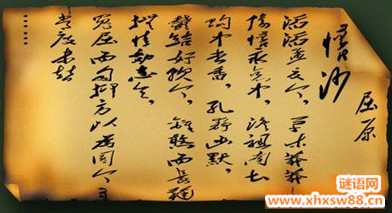 怀沙
屈原
滔滔孟夏兮，草木莽莽
伤怀永哀兮，汩徂南土
眴兮杳杳，孔静幽默，
郁结纡轸兮，离愍而长鞠
抚情效志兮，
冤屈而自抑刓方以为圜兮
常度未替
谜语网
www.xhxsw88.cn